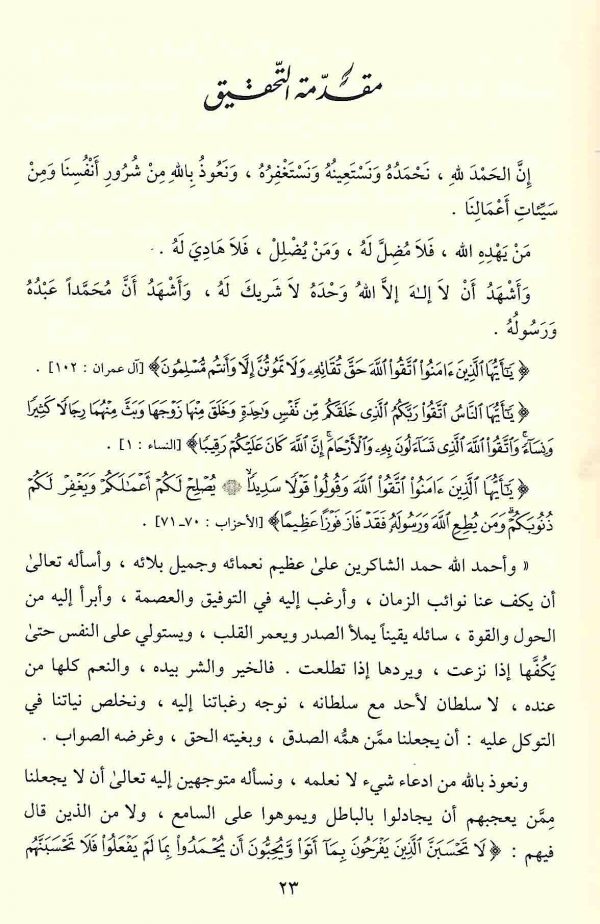 مقدّمة التّحقيق
إِنَّ الحَمْدَ للهِ ، نَحْمَدُهُ وَنَسْتَعِينُهُ وَنَسْتَغْفِرُهُ ، وَنَعُوذُ بِاللهِ مِنْ شُرُورِ أَنْفُسِنَا وَمِنْ
سَيِّئَاتِ أَعْمَالِنَا .
مَنْ يَهْدِهِ الله ، فَلاَ مُضِلَّ لَهُ ، وَمَنْ يُضْلِلْ ، فَلاَ هَادِيَ لَهُ .
وَأَشْهَدُ أَنْ لاَ إلـٰهَ إلاَّ اللهُ وَحْدَهُ لاَ شَرِيكَ لَهُ ، وَأَشْهَدُ أَنَّ مُحَمَّداً عَبْدُهُ
وَرَسُولُهُ .
﴿ يَٰٓأَيُّهَا ٱلَّذِينَ ءَامَنُوا۟ ٱتَّقُوا۟ ٱللَّهَ حَقَّ تُقَاتِهِۦ وَلَا تَمُوتُنَّ إِلَّا وَأَنتُم مُّسْلِمُونَ ﴾ [آل عمران : ١٠٢] .
﴿ يَٰٓأَيُّهَا ٱلنَّاسُ ٱتَّقُوا۟ رَبَّكُمُ ٱلَّذِى خَلَقَكُم مِّن نَّفْسٍ وَٰحِدَةٍ وَخَلَقَ مِنْهَا زَوْجَهَا وَبَثَّ مِنْهُمَا رِجَالًا كَثِيرًا
وَنِسَآءً ۚ وَٱتَّقُوا۟ ٱللَّهَ ٱلَّذِى تَسَآءَلُونَ بِهِۦ وَٱلْأَرْحَامَ ۚ إِنَّ ٱللَّهَ كَانَ عَلَيْكُمْ رَقِيبًا ﴾ [النساء : ١] .
﴿ يَٰٓأَيُّهَا ٱلَّذِينَ ءَامَنُوا۟ ٱتَّقُوا۟ ٱللَّهَ وَقُولُوا۟ قَوْلًا سَدِيدًا ۝ يُصْلِحْ لَكُمْ أَعْمَٰلَكُمْ وَيَغْفِرْ لَكُمْ
ذُنُوبَكُمْ ۗ وَمَن يُطِعِ ٱللَّهَ وَرَسُولَهُۥ فَقَدْ فَازَ فَوْزًا عَظِيمًا ﴾ [الأحزاب : ٧٠ـ٧١] .
« وأحمد الله حمد الشاكرين علىٰ عظيم نعمائه وجميل بلائه ، وأسأله تعالىٰ
أن يكف عنا نوائب الزمان ، وأرغب إليه في التوفيق والعصمة ، وأبرأ إليه من
الحول والقوة ، سائله يقيناً يملأ الصدر ويعمر القلب ، ويستولي على النفس حتىٰ
يَكُفَّها إذا نزعت ، ويردها إذا تطلعت . فالخير والشر بيده ، والنعم كلها من
عنده ، لا سلطان لأحد مع سلطانه ، نوجه رغباتنا إليه ، ونخلص نياتنا في
التوكل عليه : أن يجعلنا ممَّن همُّه الصدق ، وبغيته الحق ، وغرضه الصواب .
ونعوذ بالله من ادعاء شيء لا نعلمه ، ونسأله متوجهين إليه تعالىٰ أن لا يجعلنا
مِمَّن يعجبهم أن يجادلوا بالباطل ويموهوا على السامع ، ولا من الذين قال
فيهم : ﴿ لَا تَحْسَبَنَّ ٱلَّذِينَ يَفْرَحُونَ بِمَآ أَتَوا۟ وَّيُحِبُّونَ أَن يُحْمَدُوا۟ بِمَا لَمْ يَفْعَلُوا۟ فَلَا تَحْسَبَنَّهُم
٢٣